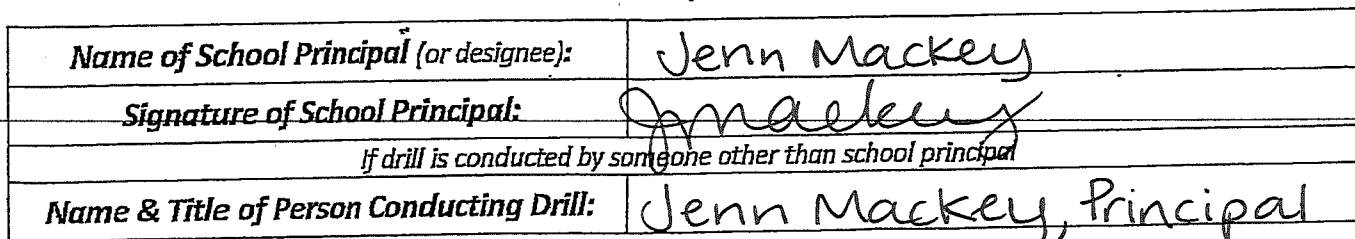 Name of School Principal (or designee): Jenn Mackey
Signature of School Principal: Jmackey
If drill is conducted by someone other than school principal
Name & Title of Person Conducting Drill: Jenn Mackey, Principal